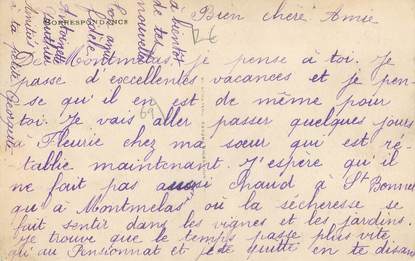 Bien chère Amie
CORRESPONDANCE
De Montmelas, je pense à toi. Je
passe d'excellentes vacances et je pen-
se qu'il en est de même pour
toi. Je vais aller passer quelques jours
à Fleurie chez ma sœur qui est ré-
tablie maintenant. J'espère qu'il
ne fait pas aussi chaud à St Bonnet
qu'à Montmelas où la sécheresse se
fait sentir dans les vignes et les jardins.
Je trouve que le temps passe plus vite
qu'au Pensionnat et je te quitte en te disant
à bientôt
de tes
nouvelles
Amitiés
à ta petite Georgette
69